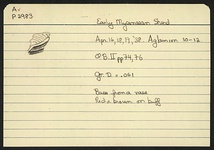 A.
P 2983
Early Mycenaean Sherd
Apr. 16, 18, 19, '38. Aglaurion 10-12
Ø.B. II pp 74, 76
Gr. D. = .061
Base from a vase
Red & brown on buff